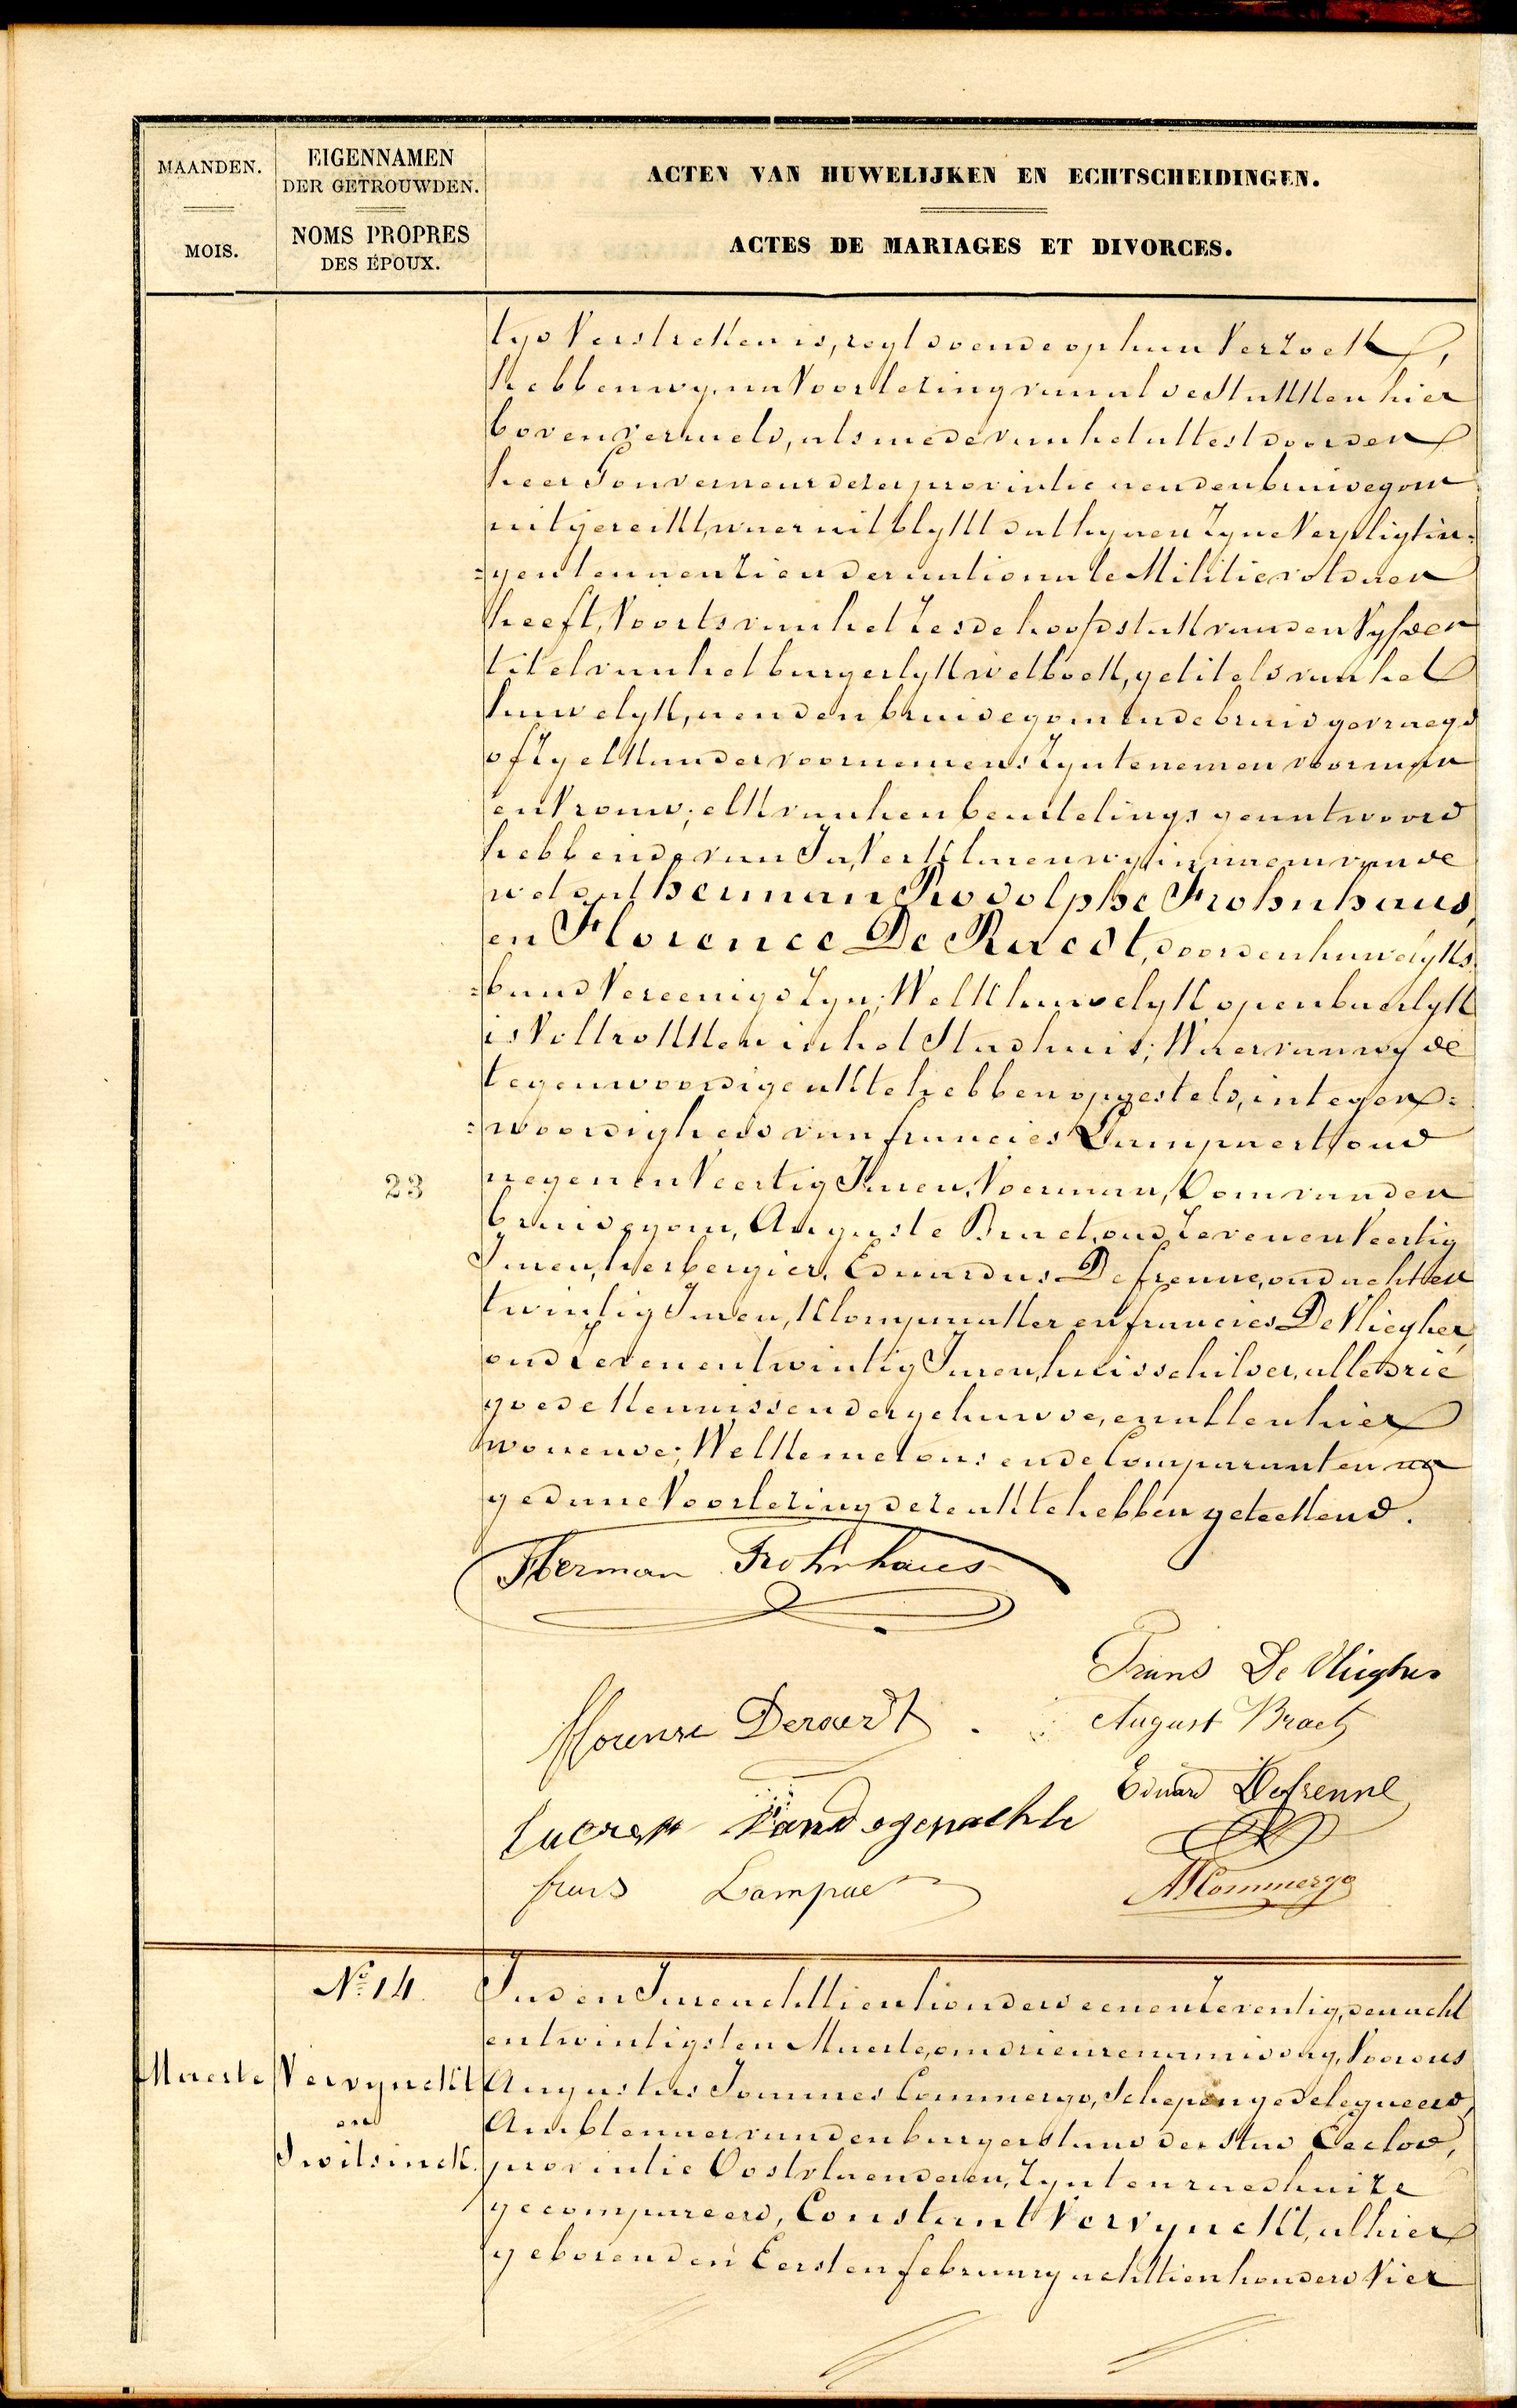 MAANDEN.
MOIS.
EIGENNAMEN
DER GETROUWDEN.
NOMS PROPRES
DES ÉPOUX.
ACTEN VAN HUWELIJKEN EN ECHTSCHEIDINGEN.
ACTES DE MARIAGES ET DIVORCES.
tyd Verstreken is, regt doende op hun Verzoek,
hebben wy, na Voorlezing van al de stukken hier
boven vermeld, als mede van het attest door den
heer Gouverneur dezer provintie aen den bruidegom
uitgereikt, waer uit blykt dat hy aen zyne Verpligtin=
=gen ten aenzien der nationale Militie voldaen
heeft, Voorts van het zesde hoofdstuk van den Vyfden
titel van het burgerlyk wetboek, getiteld van het
huwelyk, aen den bruidegom en de bruid gevraegd
of zy elkander voornemens zyn te nemen voor man
en Vrouw; elk van hen beurtelings geantwoord
hebbende, van Ja, Verklaeren wy in naem van de
wet dat herman Rodolphe Frohnhaus,
en Florence De Raedt, door den huwelyks
=band Vereenigd zyn; Welk huwelyk openbaerlyk
is Voltrokken in het Stadhuis; Waervan wy de
tegenwoordige akte hebben opgesteld, in tegen=
=woordigheid van francies Lampaert, oud
negen en Veertig Jaren, Voerman, Oom van den
bruidegom, Auguste Braet, oud zeven en Veertig
Jaren, herbergier, Eduardus Defrenne, oud acht en
twintig Jaren, Klompmaker en francies De Vliegher,
oud zeven en twintig Jaren, huisschilder, alle drie
goede Kennissen der gehuwde, en allen hier
wonende; Welke met ons en de Comparanten na
gedane Voorlezing dezer akte hebben geteekend.
23
Herman Frohnhaus
Frans De Vliegher
Florense Deraedt
August Braet
Eduard Defrenne
Vandegenachte
frans Lampaert
A Commergo
Nº 14.
Maerte
Vervynckt
en
Switsinck.
In den Jare achttien honderd een en zeventig, den acht
en twintigsten Maerte, om drie uren namiddag, Voor ons
Augustus Joannes Commergo, Schepen gedelegueerd,
Ambtenaer van den burgerstand der stad Eecloo,
provintie Oostvlaenderen, Zyn ten raedhuize
gecompareerd, Constant Vervynckt, alhier
geboren den Eersten february achttien honderd Vier